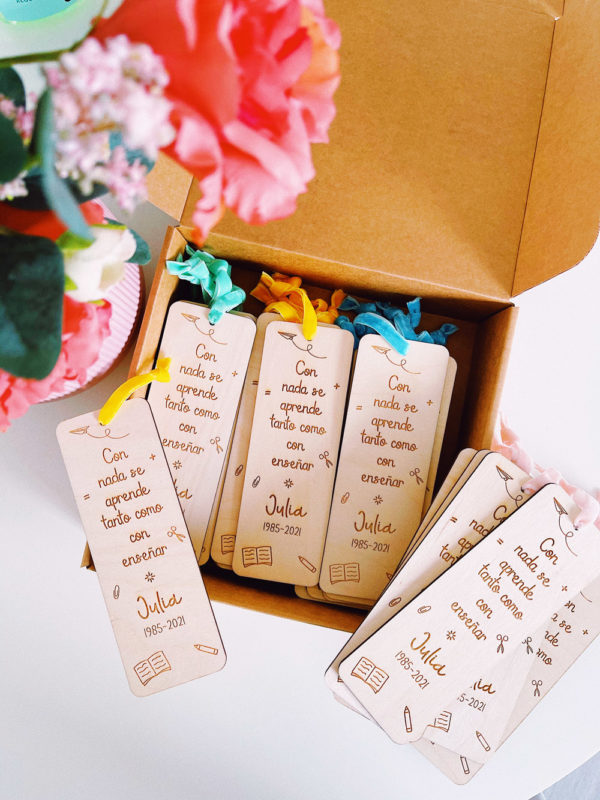 Con
nada se
aprende
tanto como
con
enseñar
Julia
1985-2021
Con
nada se
aprende
tanto como
con
enseñar
Con
nada se
aprende
tanto como
con
enseñar
Julia
1985-2021
Con
nada se
aprende
tanto como
con
enseñar
Julia
1985-2021
Con
nada se
aprende
tanto como
con
enseñar
Julia
1985-2021
Con